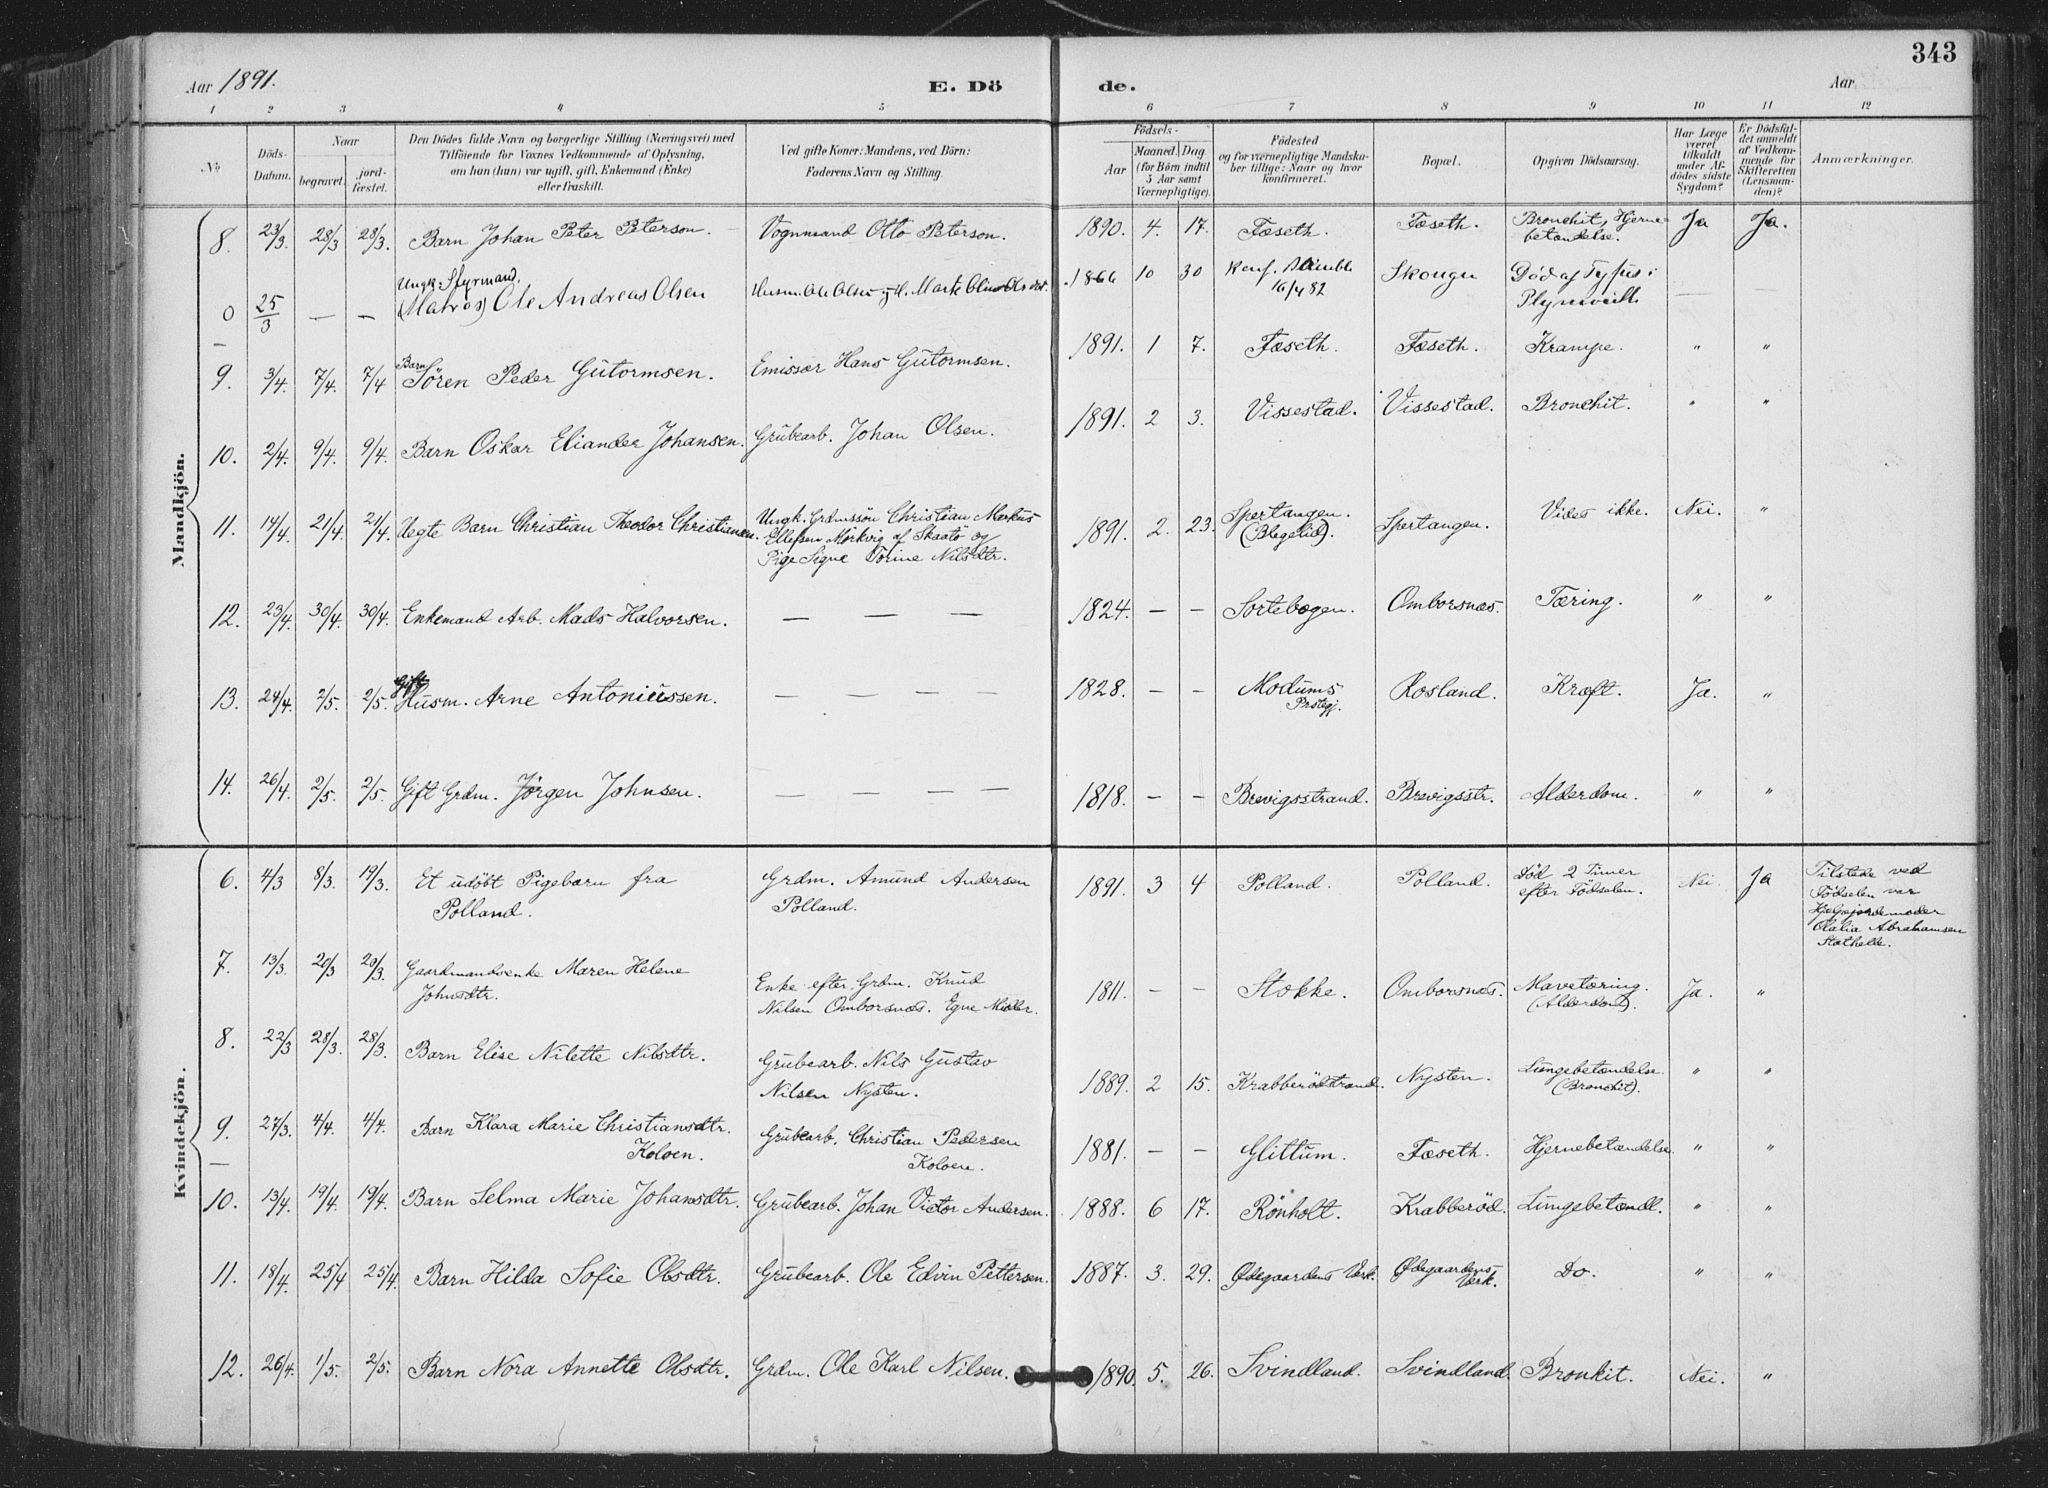 343
Aar 1891.
E. Dö de.
Aar
1 2 3 4 5 6 7 8 9 10 11 12
No
Döds-Datum.
Naar
begravet.
jord-fæstet.
Den Dödes fulde Navn og borgerlige Stilling (Næringsvei) med
Tilföiende for Voxnes Vedkommende af Oplysning,
om han (hun) var ugift, gift, Enkemand (Enke)
eller fraskilt.
Ved gifte Koner: Mandens, ved Börn:
Faderens Navn og Stilling.
Födsels-
Aar
Maaned. Dag
(for Börn indtil
5 Aar samt
Værnepligtige).
Födested
og for værnepligtige Mandska-
ber tillige: Naar og hvor
konfirmeret.
Bopæl.
Opgiven Dödsaarsag.
Har Læge
været
tilkaldt
under Af-
dödes sidste
Sygdom?
Er Dödsfal-
det anmeldt
af Vedkom-
mende for
Skifteretten
(Lensman-
den)?
Anmærkninger.
Mandkjön.
8. 23/3. 28/3 28/3. Barn Johan Peter Peterson. Vognmand Otto Peterson. 1890. 4. 17. Fæseth. Fæseth. Bronchit, Hjerne-
betændelse. Ja Ja.
Ungk. Styrmand,
0 25/3 — — (Matros) Ole Andreas Olsen Husm. Ole Olsen og H. Marte Olsdat. 1866 10 30 Konf. Bamble
16/4 82 Skougen Död af Tyfus i
— —
9. 3/4. 7/4. 7/4 Barn Sören Peder Gutormsen. Emissær Hans Gutormsen. 1891. 1 7. Fæseth. Fæseth. Krampe. " "
10. 2/4. 9/4. 9/4. Barn Oskar Eliander Johansen. Grubearb. Johan Olsen. 1891. 2 3. Vissestad. Vissestad. Bronchit. " "
11. 14/4. 21/4. 21/4. Uegte Barn Christian Theodor Christiansen. Ungk. Grdmssön Christian Markus
Ellefsen Mörkvig af Skaatö og
Pige Signe Torine Nilsdtr. 1891. 2. 23. Spertangen.
Spertangen. Vides ikke. Nei. "
12. 23/4. 30/4. 30/4. Enkemand Arb. Mads Halvorsen. — — — 1824. — — Sortebogen. Omborsnæs. Tæring. " "
13. 24/4. 2/5. 2/5. Gift Husm. Arne Antoniussen. — — — — 1828. — — Modums
Prstegj. Rosland. Kræft. Ja. "
14. 26/4. 2/5. 2/5. Gift Grdm. Jörgen Johnsen. — — — — 1818. — — Brevigsstrand. Brevigsstr. Alderdom. " "
Kvindekjön.
6. 4/3 8/3. 19/3. Et udöbt Pigebarn fra
Polland. Grdm. Amund Andersen
Polland. 1891. 3 4 Polland. Polland. Död 2 Timer
efter Födselen. Nei. Ja Tilstede ved
Födselen var
Hjelpejordemoder
Olalia Abrahamsen
Stathelle.
7. 13/3. 20/3 20/3. Gaardmandsenke Maren Helene
Johnsdtr. Enke efter Grdm. Knud
Nilsen Omborsnæs. Egne Midler. 1811. — — Stokke. Omborsnæs. Mavetæring.
(Alderdom). Ja. "
8. 22/3 28/3. 28/3. Barn Elise Nilette Nilsdtr. Grubearb. Nils Gustav
Nilsen Nysten. 1889. 2 15. Krabberödstrand. Nysten. Lungebetændelse.
(Bronchit). " "
9. 27/3. 4/4. 4/4. Barn Klara Marie Christiansdtr.
Kolven. Grubearb. Christian Pedersen
Kolven. 1881. — — Glittum. Fæseth. Hjernebetændelse. " "
10. 13/4. 19/4. 19/4. Barn Selma Marie Johansdtr. Grubearb. Johan Victor Andersen. 1888. 6 17. Rönholt. Krabberöd. Lungebetændl. " "
11. 18/4. 25/4 25/4. Barn Hilda Sofie Olsdtr. Grubearb. Ole Edvin Pettersen. 1887. 3. 29. Ödegaardens Verk. Ödegaardens
Verk. Do. " "
12. 26/4. 1/5. 2/5. Barn Nora Annette Olsdtr. Grdm. Ole Karl Nilsen. 1890. 5. 26. Svindland. Svindland. Bronkit. Nei. "